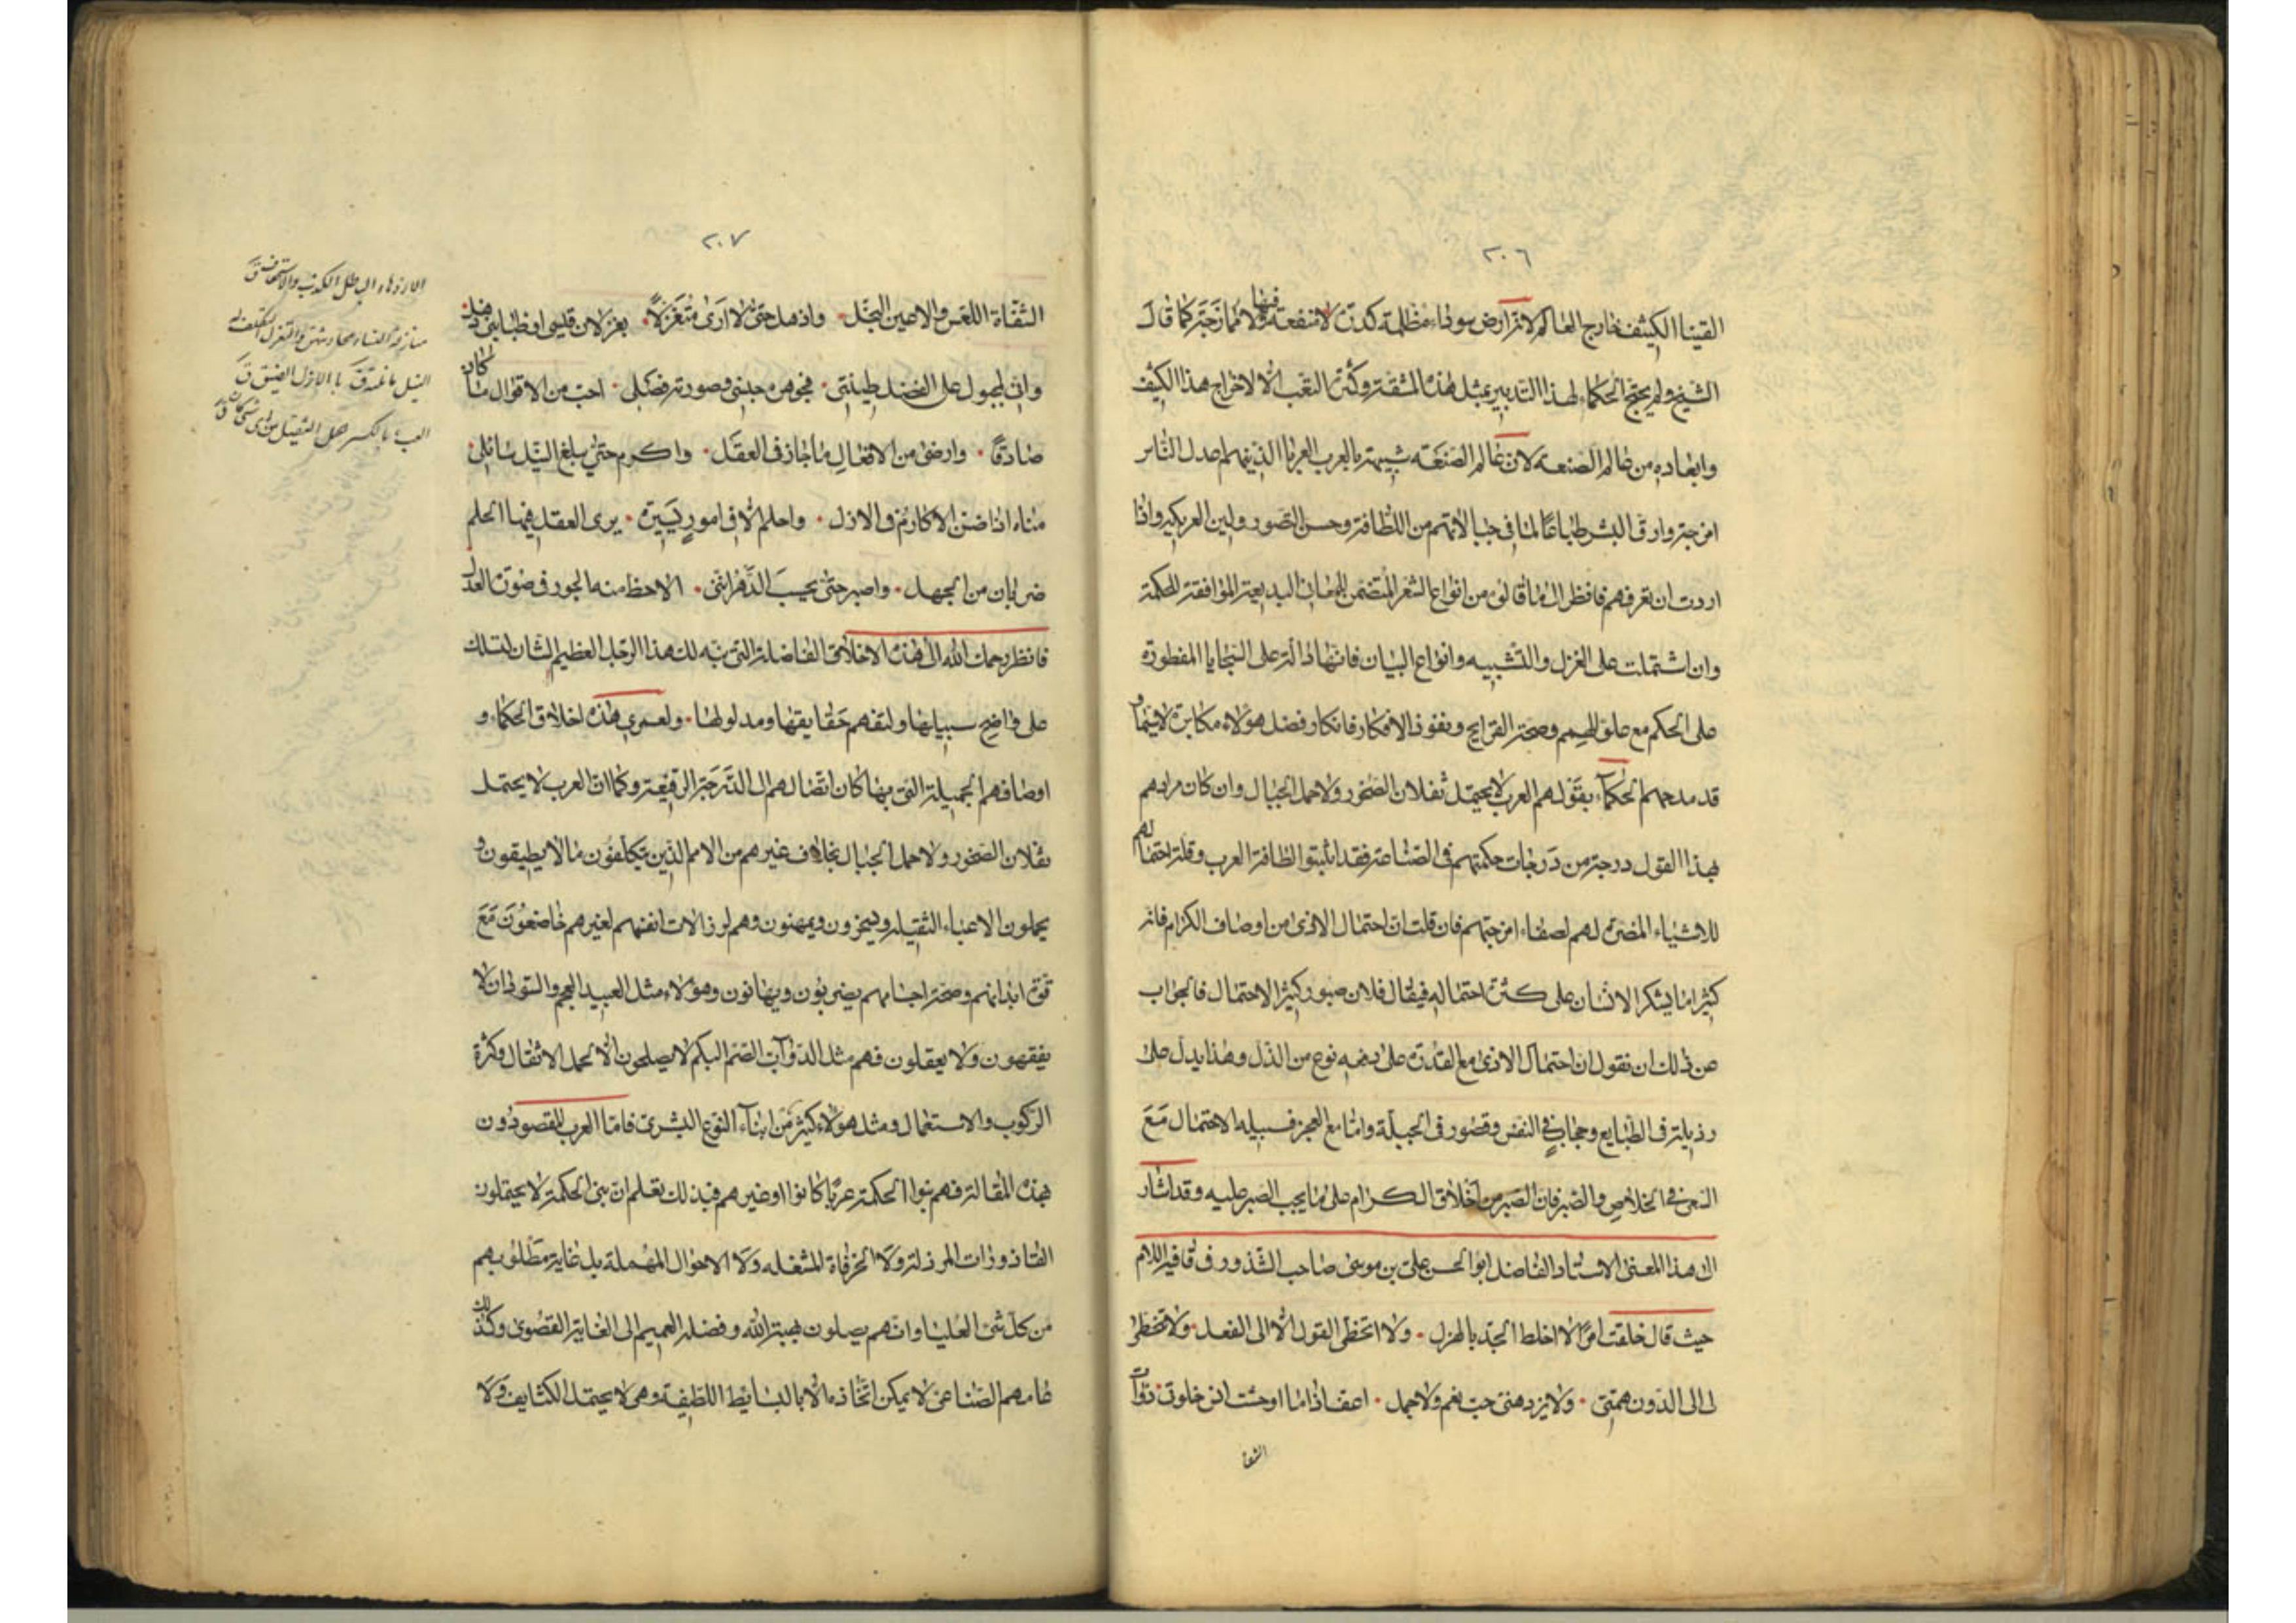 ٢٠٦
القينا الكثيف خارج العالم لانه ارض سوداء مظلمة كدرة لا منفعة فيها ولا ممازجة كما قال
الشيخ ولم يحتج الحكماء لهذا التدبير بمثل هذه المشقة وكثرة التعب الا لاخراج هذا الكثيف
وابعاده من عالم الصنعة لان عالم الصنعة شبيهة بالعرب العربا الذين هم اعدل الناس
امزجة وارق البشر طباعا لما في جبالاتهم من اللطافة وحسن التصور ولين العريكة واذا
اردت ان تعرفهم فانظر الى ما قالوه من انواع الشعر المتضمن للمعاني البديعة الموافقة للحكمة
وان اشتملت على الغزل والتشبيه وانواع البيان فانها دالة على السجايا المفطورة
على الحكم مع علو الهمم وصحة القرايح ونفوذ الافكار فانكار فضل هؤلاء مكابرة لا سيما و
قد مدحهم الحكمآء بقولهم العرب لا يحتمل ثقلان الصخور ولا حمل الجبال وان كان مرادهم
بهذا القول درجة من درجات حكمتهم في الصناعة فقد اثبتوا لطافة العرب وقلة احتمالهم
للاشياء المضرة لهم لصفاء امزجتهم فان قلت ان احتمال الاذى من اوصاف الكرام فانه
كثيرا ما يشكر الانسان على كثرة احتماله فيقال فلان صبور كثير الاحتمال فالجواب
عن ذلك ان نقول ان احتمال الاذى مع القدرة على دفعه نوع من الذل وهذا يدل على
رذيلة في الطبايع وحجاب في النفس وقصور في الجبلة واما مع العجز فسبيله الاحتمال مع
السعي في الخلاص والصبر فان الصبر من اخلاق الكرام على ما يجب الصبر عليه وقد اشار
الى هذا المعنى الاستاد الفاضل ابو الحسن علي بن موسى صاحب الشذور في قافية اللام
حيث قال خلقت امرأ لا اخلط الجد بالهزل ٠ ولا اتخطى القول الا الى الفعل ٠ ولا تتخطى
لي الى الدون همتي ٠ ولا يزدهني حب نعم ولا جمل ٠ اعف اذا ما اوحشت ان خلوت ذوات
الشفا
٢٠٧
الشفاة اللعس والاعين النجل ٠ واذهل حتى لا ارى متغزلا ٠ بغزلان قليبي او ظبا بني ذهل
واني لمجبول على الفضل طينتي ٠ فجوهره جبني وصورته فضلي ٠ احب من الاقوال ما كان
صادقا ٠ وارضى من الافعال ما جاز في العقل ٠ واكرم حتى يبلغ النيل سائلي
مناه اذا ضن الاكارم في الازل ٠ واحلم الا في امور يسيرة ٠ يرى العقل فيها الحلم
ضربان من الجهل ٠ واصبر حتى يحسب الدهر انني ٠ الاحظ منه الجور في صورة العدل
فانظر رحمك الله الى هذه الاخلاق الفاضلة التي نبه لك هذا الرجل العظيم الشان لتسلك
على واضح سبيلها ولتفهم حقايقها ومدلولها ٠ ولعمري هذه اخلاق الحكماء و
اوصافهم الجميلة التي بها كان اتصالهم الى الدرجة الرفيعة وكما ان العرب لا يحتمل
ثقلان الصخور ولا حمل الجبال بخلاف غيرهم من الامم الذين يتكلفون ما لا يطيقون و
يحملون الاعباء الثقيلة ويسخرون ويمهنون وهم لرذالات انفسهم لغيرهم خاضعون مع
قوة ابدانهم وصحة اجسامهم يضربون ويهانون وهؤلاء مثل العبيد العجم والسودان لا
يفقهون ولا يعقلون فهم مثل الدوآب الصم البكم لا يصلحون الا لحمل الاثقال وكثرة
الركوب والاستعمال ومثل هؤلاء كثير من ابنآء النوع البشري فاما العرب المقصودون
بهذه المقالة فهم بنوا الحكمة عربا كانوا او غيرهم فبذلك تعلم ان بني الحكمة لا يحتملون
القاذورات المرذلة ولا الخرفاة المشغله ولا الاحوال المهملة بل غاية مطلوبهم
من كل شئ العليا وانهم يصلون بمحبة الله وفضله العميم الى الغاية القصوى وكذلك
طامهم الصناعي لا يمكن اتخاذه الا بالبسايط اللطيفة وهي لا يحتمل الكثايف ولا